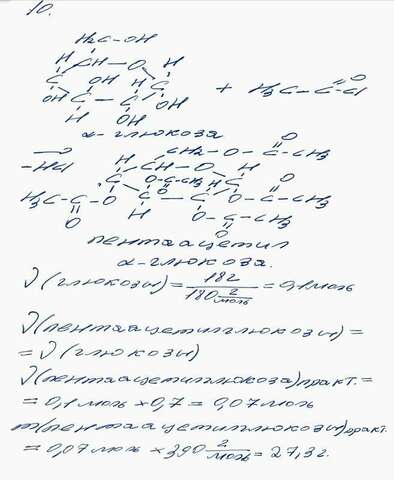 10.
H₂C-OH
H CH O H
C OH C
OH C C OH
H OH
+ H₃C-C-Cl
O
α-глюкоза
-HCl
CH₂-O-C-CH₃
O
H CH O H
C O-C-CH₃ H C O-C-CH₃
O O
H₃C-C-O C C O-C-CH₃
O H O
пентаацетил
α-глюкоза.
ν(глюкозы) = 18г / 180 г/моль = 0,1моль
ν(пентаацетилглюкозы) =
= ν(глюкозы)
ν(пентаацетилглюкоза)практ. =
= 0,1моль × 0,7 = 0,07моль
m(пентаацетилглюкозы)практ.
= 0,07моль × 390 г/моль = 27,3г.